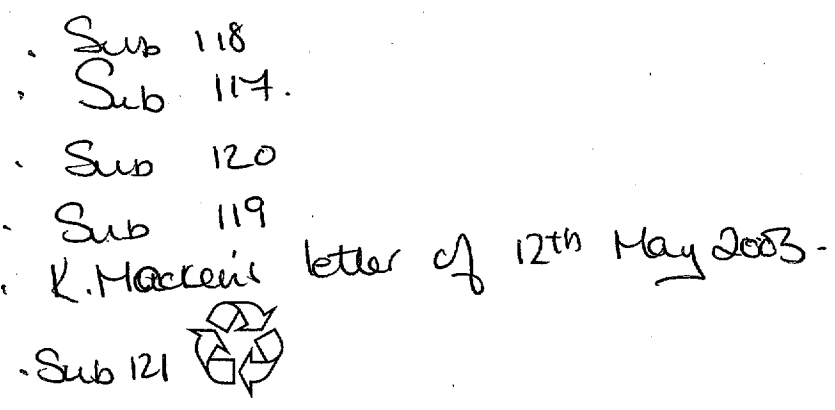 . Sub 118
. Sub 117.
. Sub 120
. Sub 119
. K. Macken's letter of 12th May 2003.
. Sub 121